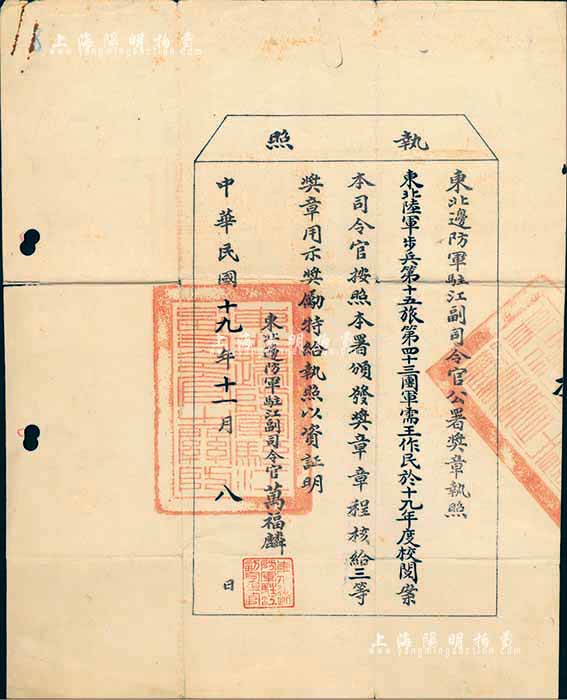 上海陽明拍賣
www.yangmingauction.com
執照
東北邊防軍駐江副司令官公署獎章執照
東北陸軍步兵第十五旅第四十三團軍需王作民於十九年度校閱案
本司令官按照本署頒發獎章章程核給三等
獎章用示獎勵特給執照以資証明
東北邊防軍駐江副司令官萬福麟
中華民國十九年十一月八日
上海陽明拍賣
www.yangmingauction.com